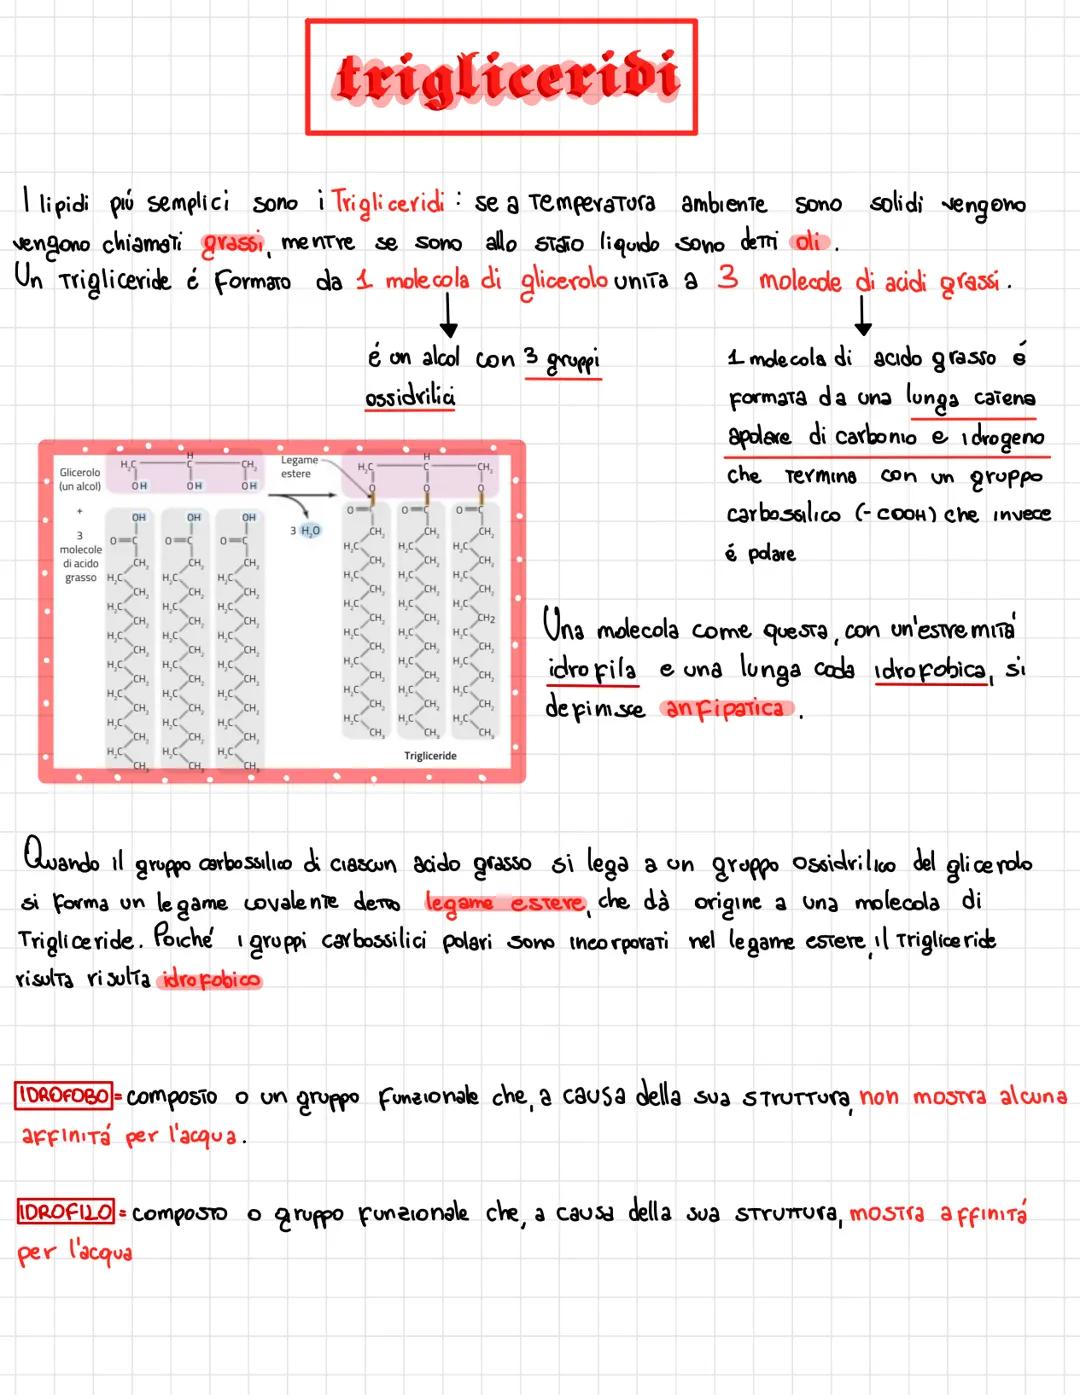 trigliceridi
I lipidi piú semplici sono i Trigliceridi : se a Temperatura ambiente sono solidi vengono
vengono chiamati grassi, mentre se sono allo stato liquido sono detti oli.
Un Trigliceride é formato da 1 molecola di glicerolo unita a 3 molecole di acidi grassi.
é un alcol con 3 gruppi
ossidrilici
1 molecola di acido grasso é
formata da una lunga catena
apolare di carbonio e idrogeno
che termina con un gruppo
carbossilico (-COOH) che invece
é polare
Glicerolo
(un alcol)
+
3
molecole
di acido
grasso
H₂C C CH₂
H
OH OH OH
OH OH OH
O=C O=C O=C
CH₂ CH₂ CH₂
H₂C H₂C H₂C
CH₂ CH₂ CH₂
H₂C H₂C H₂C
CH₂ CH₂ CH₂
H₂C H₂C H₂C
CH₂ CH₂ CH₂
H₂C H₂C H₂C
CH₂ CH₂ CH₂
H₂C H₂C H₂C
CH₂ CH₂ CH₂
H₂C H₂C H₂C
CH₂ CH₂ CH₂
H₂C H₂C H₂C
CH₃ CH₃ CH₃
Legame
estere
3 H₂O
H
H₂C C CH₂
O O O
O=C O=C O=C
CH₂ CH₂ CH₂
H₂C H₂C H₂C
CH₂ CH₂ CH₂
H₂C H₂C H₂C
CH₂ CH₂ CH₂
H₂C H₂C H₂C
CH₂ CH₂ CH2
H₂C H₂C H₂C
CH₂ CH₂ CH₂
H₂C H₂C H₂C
CH₂ CH₂ CH₂
H₂C H₂C H₂C
CH₂ CH₂ CH₂
H₂C H₂C H₂C
CH₃ CH₃ CH₃
Trigliceride
Una molecola come questa, con un'estremitá
idrofila e una lunga coda idrofobica, si
definisce anfipatica.
Quando il gruppo carbossilico di ciascun acido grasso si lega a un gruppo ossidrilico del glicerolo
si forma un legame covalente detto legame estere, che dà origine a una molecola di
Trigliceride. Poiché i gruppi carbossilici polari sono incorporati nel legame estere, il Trigliceride
risulta risulta idrofobico
IDROFOBO = composto o un gruppo funzionale che, a causa della sua struttura, non mostra alcuna
affinitá per l'acqua.
IDROFILO = composto o gruppo funzionale che, a causa della sua struttura, mostra affinitá
per l'acqua